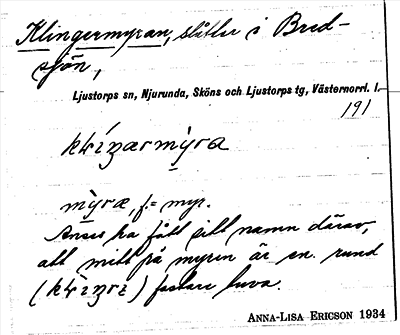 Klingermyran, slåtter i Bred-
sjön,
Ljustorps sn, Njurunda, Sköns och Ljustorps tg, Västernorrl. l.
191
myræ, f. = myr.
Anses ha fått sitt namn därav,
att mitt på myren är en rund
fastare tuva.
ANNA-LISA ERICSON 1934